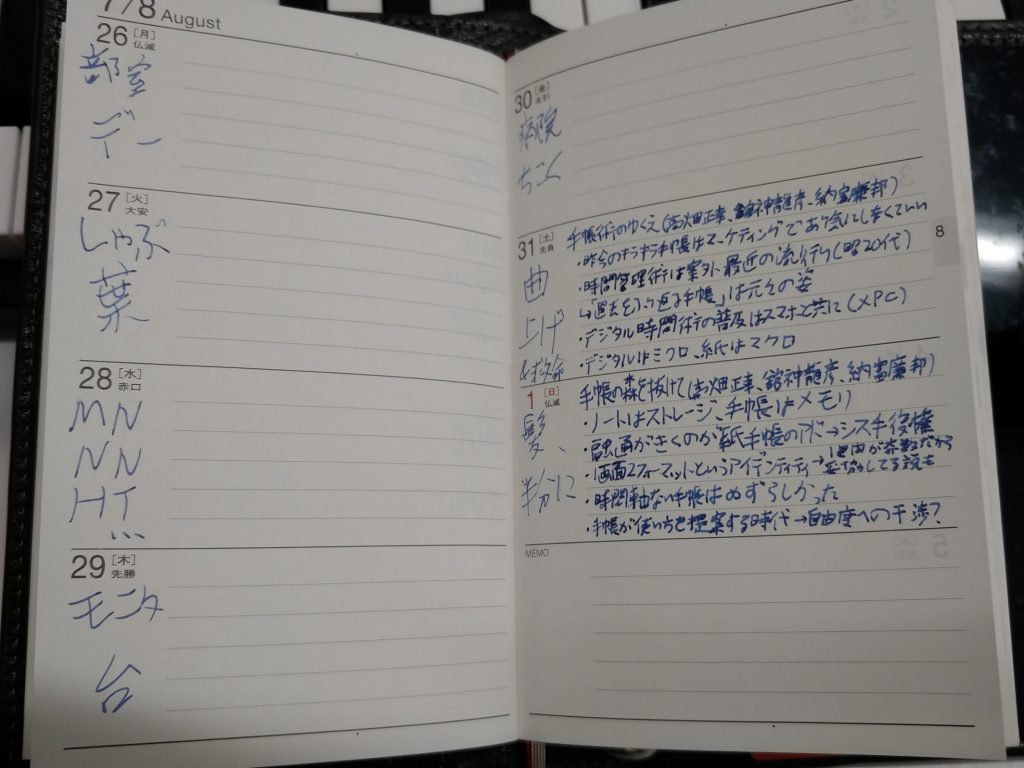 7/8 August
26 [月]
仏滅
部室
デー
27 [火]
大安
しゃぶ
葉
28 [水]
赤口
MN
NN
HT
...
29 [木]
先勝
モニタ
台
30 [金]
友引
病院
ちこく
31 [土]
先負
曲
上げ
手帳術のゆくえ(高畑正幸、舘神龍彦、納富廉邦)
・昨今のキラキラ手帳はマーケティングであり気にしなくていい
・時間管理術は案外最近の流行り(昭20代)
↳「過去をふり返る手帳」は元々の姿
・デジタル時間術の普及はスマホと共に(×PC)
・デジタルはミクロ、紙はマクロ
8
1 [日]
仏滅
髪、
半分に
手帳の森を抜けて(高畑正幸、舘神龍彦、納富廉邦)
・ノートはストレージ、手帳はメモリ
・融通がきくのが紙手帳のアド→システ手復権
・1画面2フォーマットというアイデンティティ→自由が奔放だから
妥協してる説も
・時間軸ない手帳はめずらしかった
・手帳が使い方を提案する時代→自由度への干渉?
MEMO